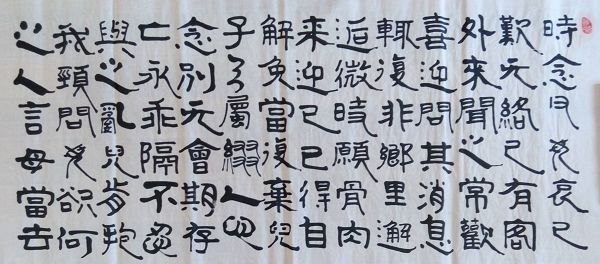 時念父母哀已
歎无終已有客
外來聞之常歡
喜迎問其消息
輒復非鄉里邂
逅微時願骨肉
来迎已已得自
解免當復棄兒
子天屬綴人心
念別无會期存
亡永乖隔不忍
與之亂兒前抱
我頸問母欲何
之人言母當去